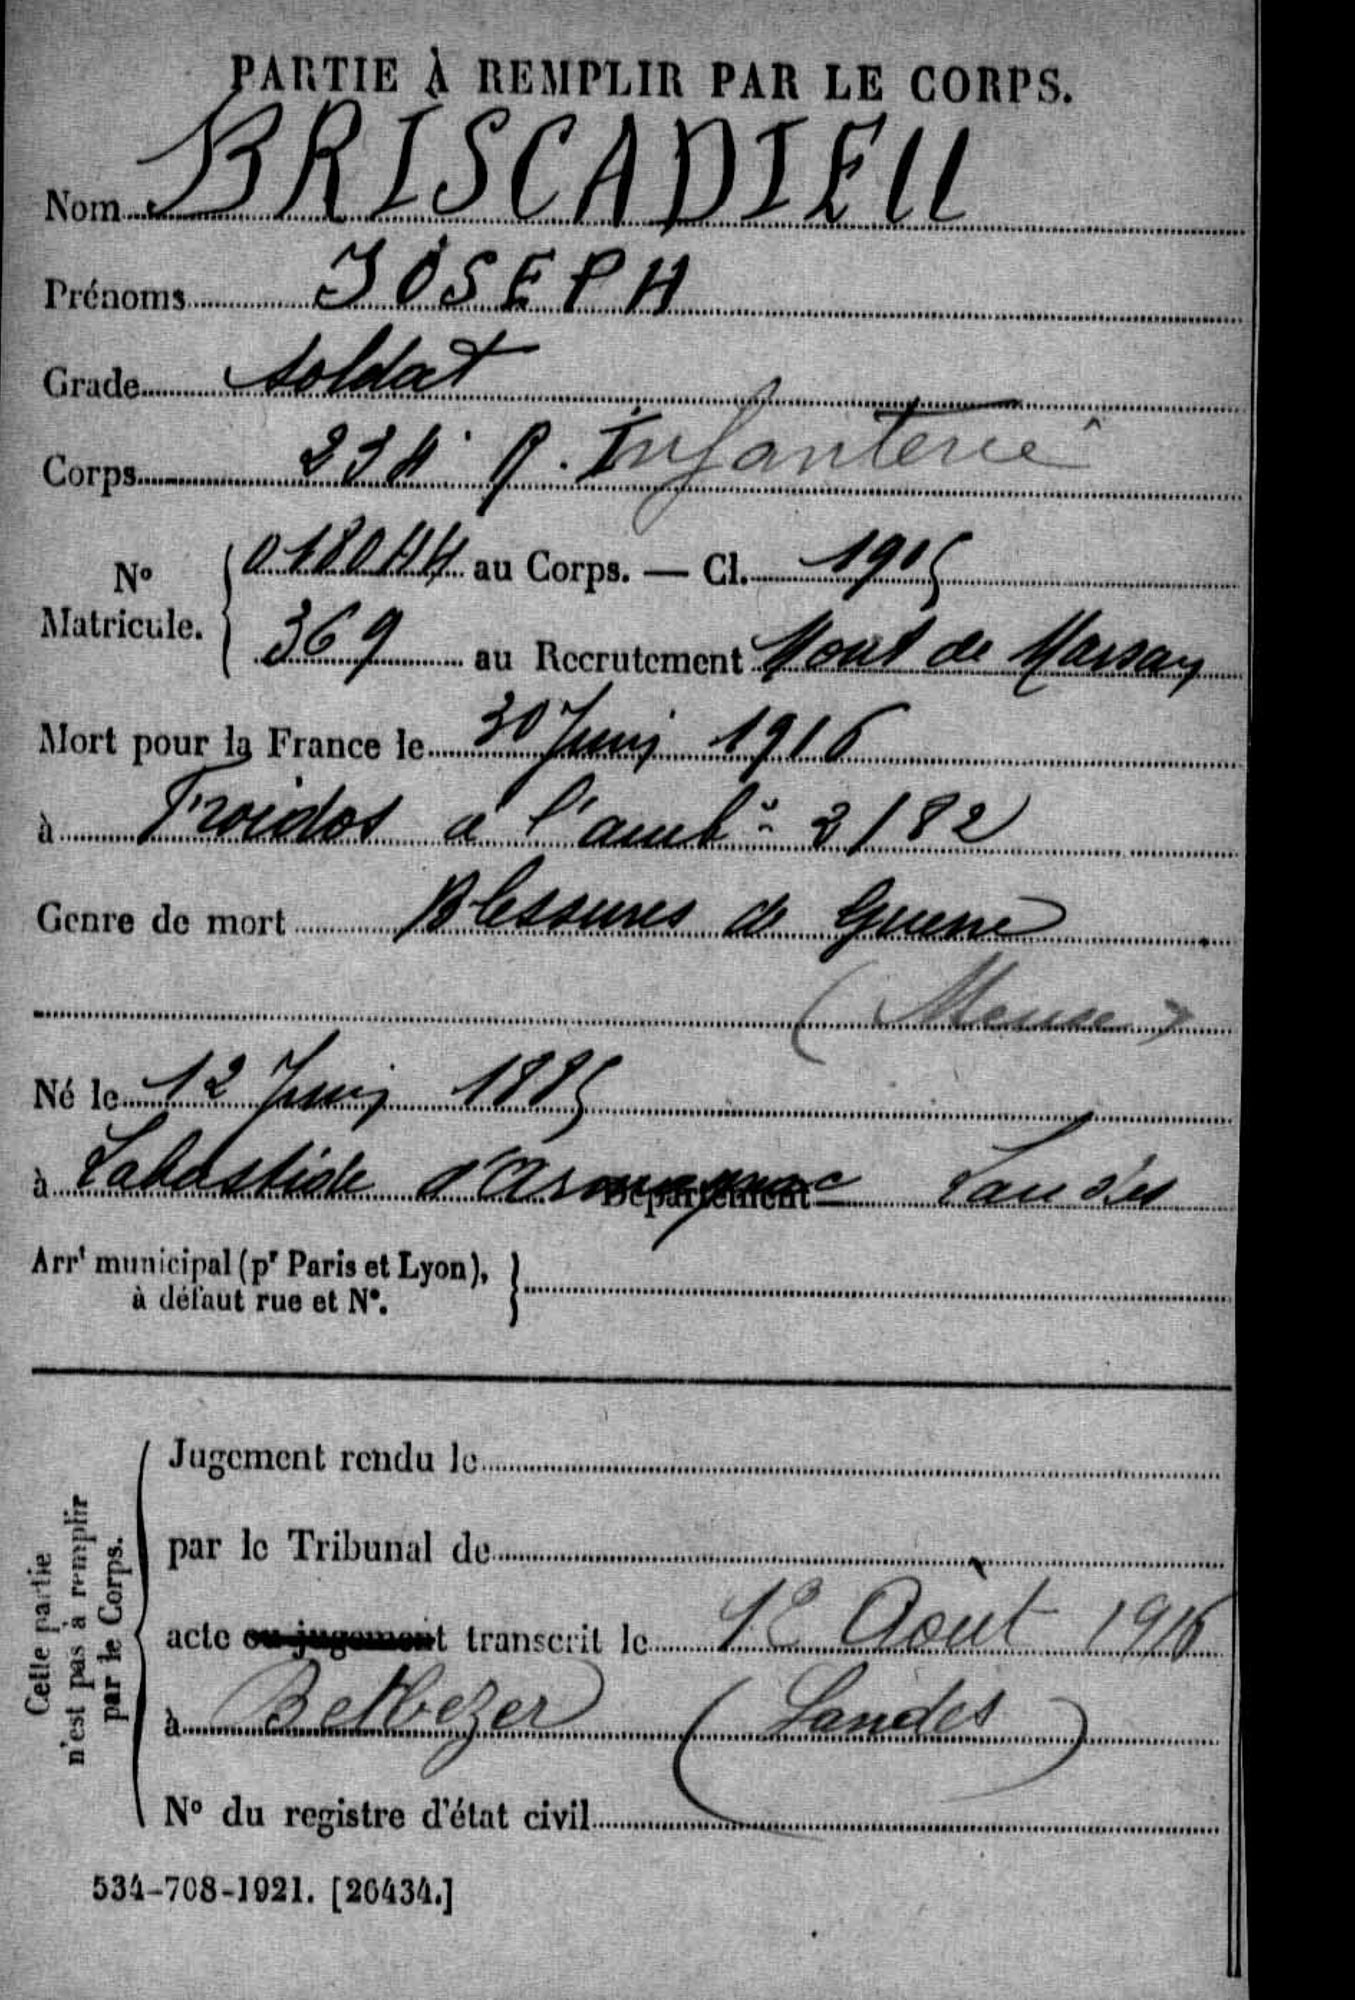 PARTIE À REMPLIR PAR LE CORPS.
Nom BRISCADIEU
Prénoms JOSEPH
Grade Soldat
Corps 234e R. Infanterie
No Matricule. 018044 au Corps. — Cl. 1905
369 au Recrutement Mont de Marsan
Mort pour la France le 30 Juin 1916
à Froidos à l'ambce 3/82
Genre de mort Blessures de Guerre
(Meuse)
Né le 12 Juin 1885
à Labastide d'Armagnac Département Landes
Arrt municipal (pr Paris et Lyon), à défaut rue et No.
Cette partie n'est pas à remplir par le Corps.
Jugement rendu le
par le Tribunal de
acte ou jugement transcrit le 12 Août 1916
à Betbezer (Landes)
No du registre d'état civil
534-708-1921. [26434.]